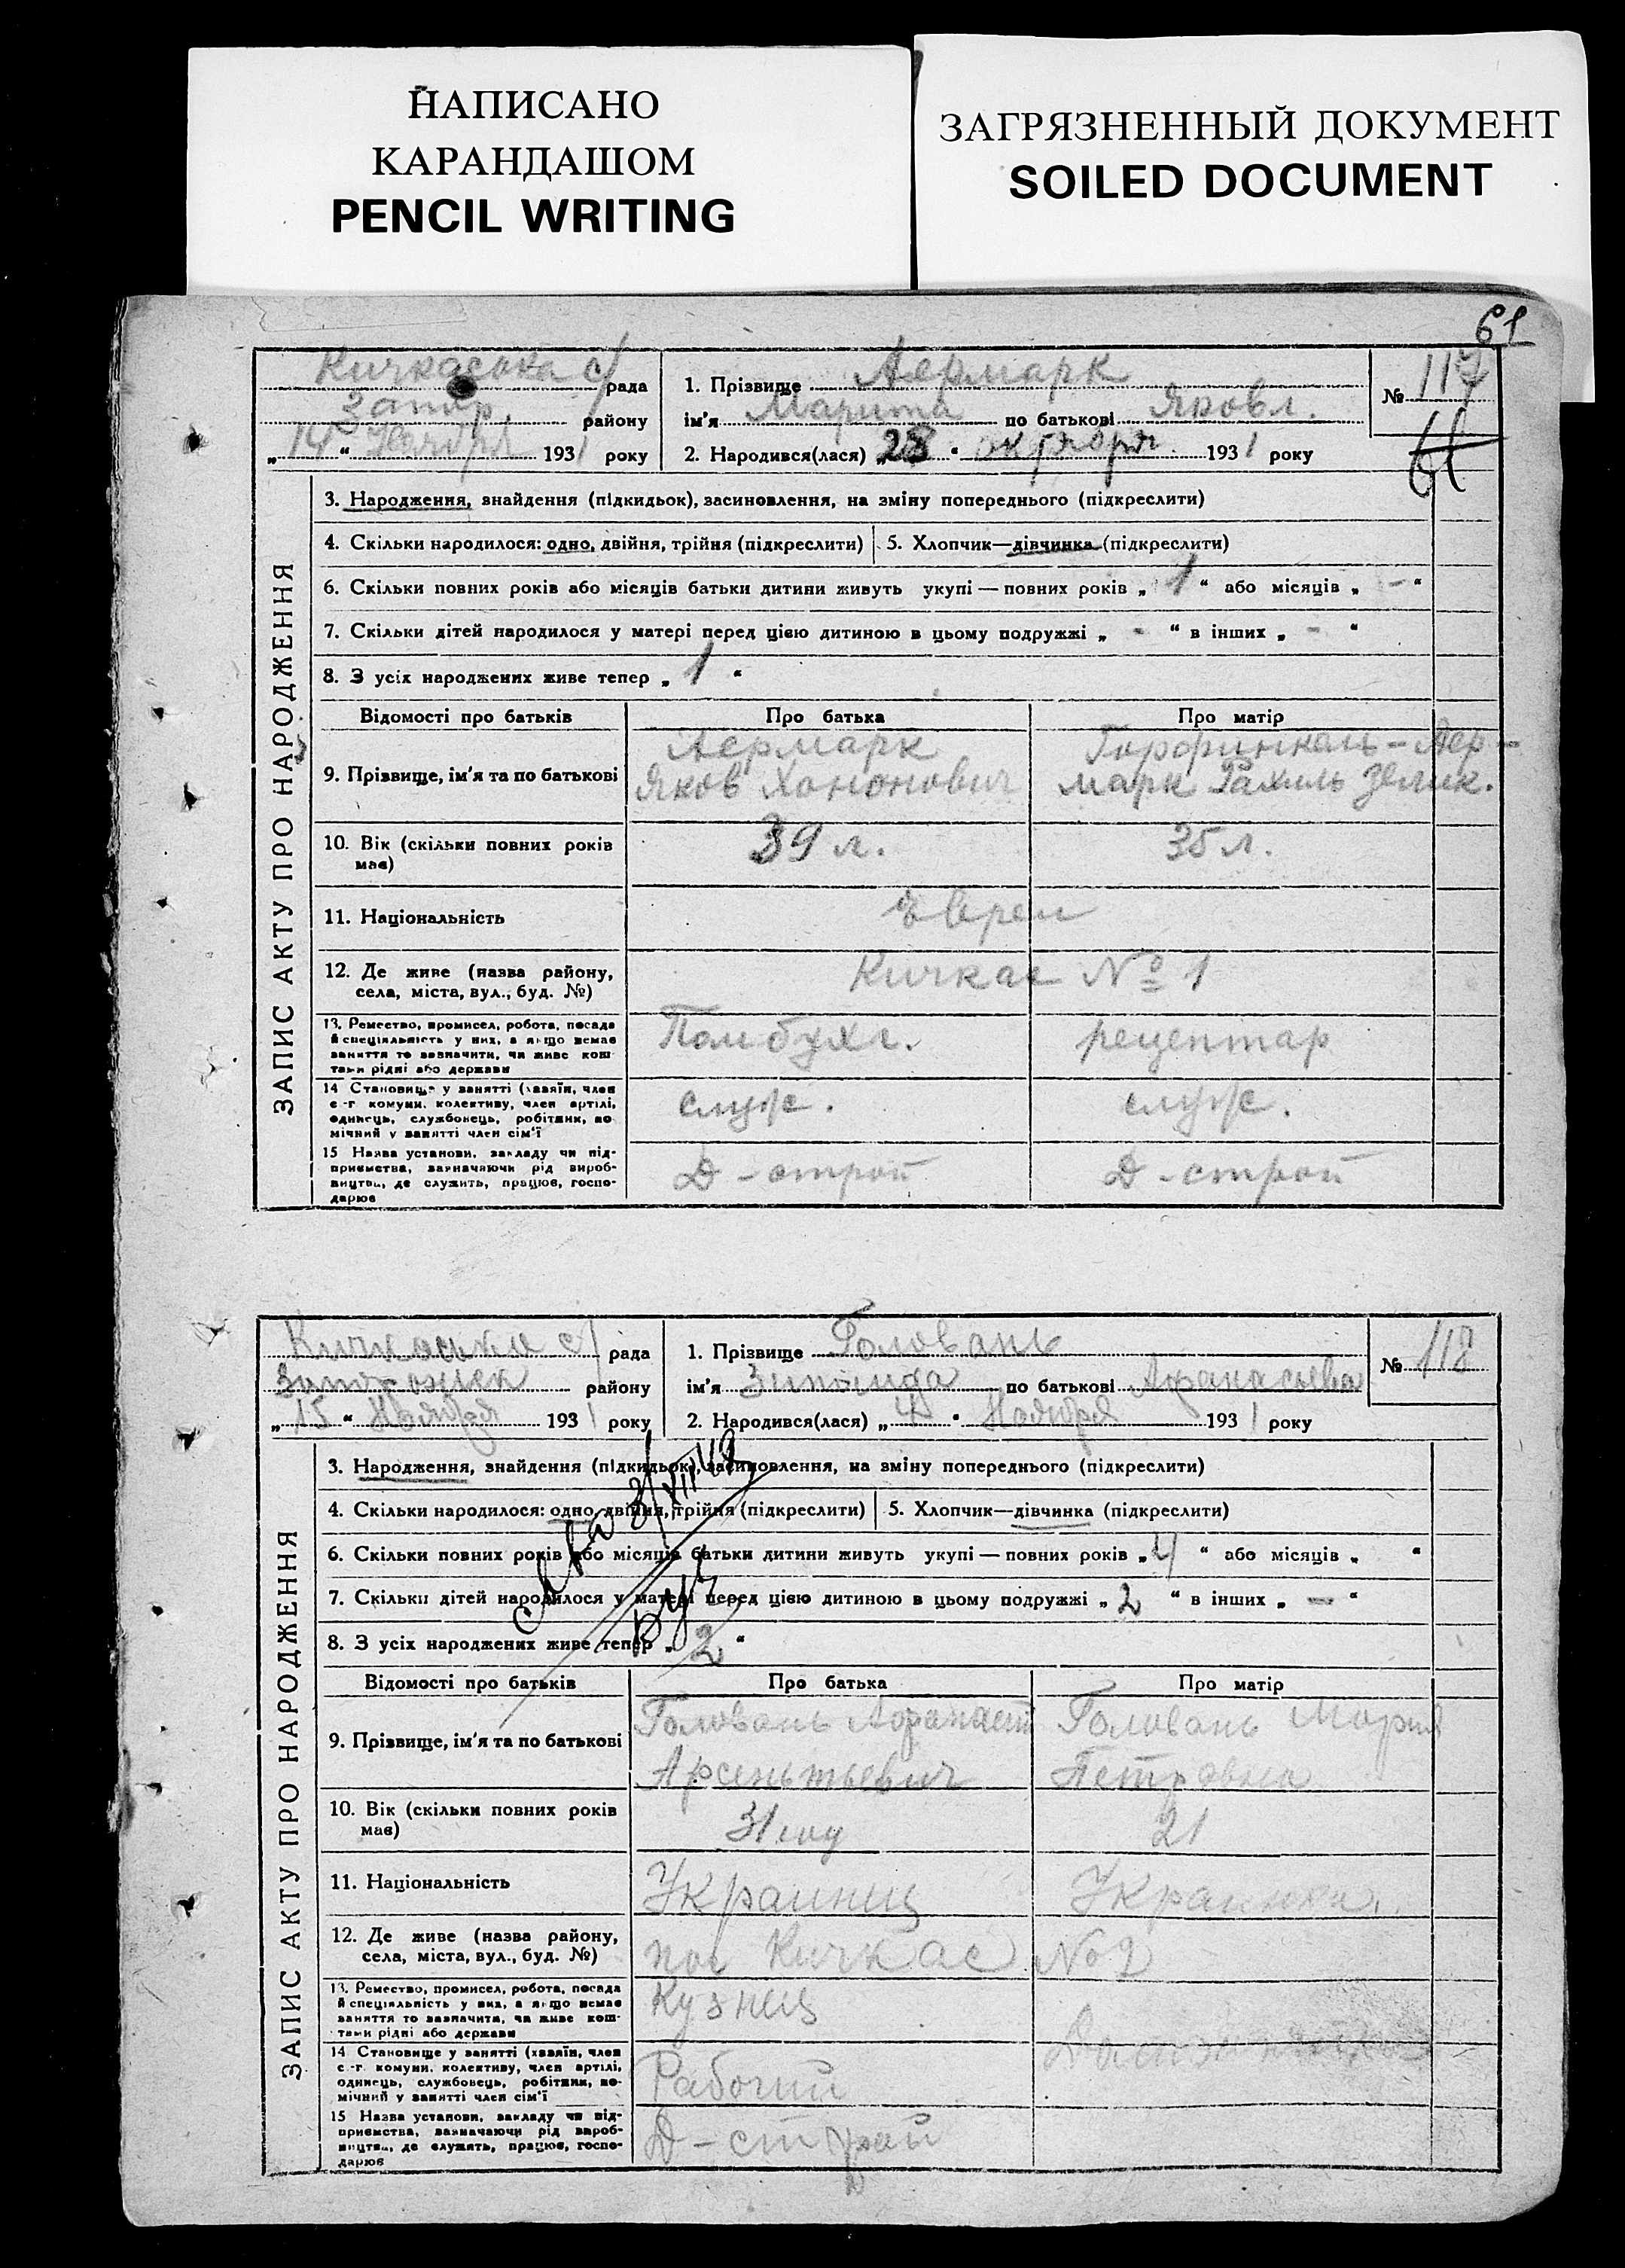 НАПИСАНО
КАРАНДАШОМ
PENCIL WRITING
ЗАГРЯЗНЕННЫЙ ДОКУМЕНТ
SOILED DOCUMENT
61
Кичкаська с/рада
Запор. району
„14“ Ноября 1931 року
1. Прізвище Аермарк
ім'я Марита по батькові Яковл.
2. Народився(лася) „28“ октября 1931 року
№ 117
61
ЗАПИС АКТУ ПРО НАРОДЖЕННЯ
3. Народження, знайдення (підкидьок), засиновлення, на зміну попереднього (підкреслити)
4. Скільки народилося: одно, двійня, трійня (підкреслити) 5. Хлопчик—дівчинка (підкреслити)
6. Скільки повних років або місяців батьки дитини живуть укупі — повних років „1“ або місяців „-“
7. Скільки дітей народилося у матері перед цією дитиною в цьому подружжі „-“ в інших „-“
8. З усіх народжених живе тепер „1“
Відомості про батьків Про батька Про матір
9. Прізвище, ім'я та по батькові
Аермарк
Яков Хононович
Горфинкель-Аер-
марк Рахиль Зелик.
10. Вік (скільки повних років має) 39 л. 35 л.
11. Національність Евреи
12. Де живе (назва району,
села, міста, вул., буд. №)
Кичкас № 1
13. Ремество, промисел, робота, посада
й спеціяльність у них, а якщо немає
заняття то зазначити, чи живе кош-
тами рідні або держави
Помбухг. рецептар
14 Становище у занятті (хазяїн, член
с.-г. комуни, колективу, член артілі,
одинець, службовець, робітник, по-
мічний у занятті член сім'ї
служ. служ.
15 Назва установи, закладу чи під-
приємства, зазначаючи рід вироб-
ництва, де служить, працює, госпо-
дарює
Д-строй Д-строй
Кичкаська с/рада
Запорожск району
„15“ Ноября 1931 року
1. Прізвище Головань
ім'я Зинаида по батькові Афанасьевна
2. Народився(лася) „ “ Ноября 1931 року
№ 118
ЗАПИС АКТУ ПРО НАРОДЖЕННЯ
3. Народження, знайдення (підкидьок), засиновлення, на зміну попереднього (підкреслити)
4. Скільки народилося: одно, двійня, трійня (підкреслити) 5. Хлопчик—дівчинка (підкреслити)
6. Скільки повних років або місяців батьки дитини живуть укупі — повних років „4“ або місяців „ “
7. Скільки дітей народилося у матері перед цією дитиною в цьому подружжі „2“ в інших „—“
8. З усіх народжених живе тепер „2“
Відомості про батьків Про батька Про матір
9. Прізвище, ім'я та по батькові
Головань Афанасий
Арсентьевич
Головань Мария
Петровна
10. Вік (скільки повних років має) 31 год 21
11. Національність Украинец Украинка
12. Де живе (назва району,
села, міста, вул., буд. №)
пос Кичкас №2
13. Ремество, промисел, робота, посада
й спеціяльність у них, а якщо немає
заняття то зазначити, чи живе кош-
тами рідні або держави
Кузнец
14 Становище у занятті (хазяїн, член
с.-г. комуни, колективу, член артілі,
одинець, службовець, робітник, по-
мічний у занятті член сім'ї
Рабочий
15 Назва установи, закладу чи під-
приємства, зазначаючи рід вироб-
ництва, де служить, працює, госпо-
дарює
Д-строй